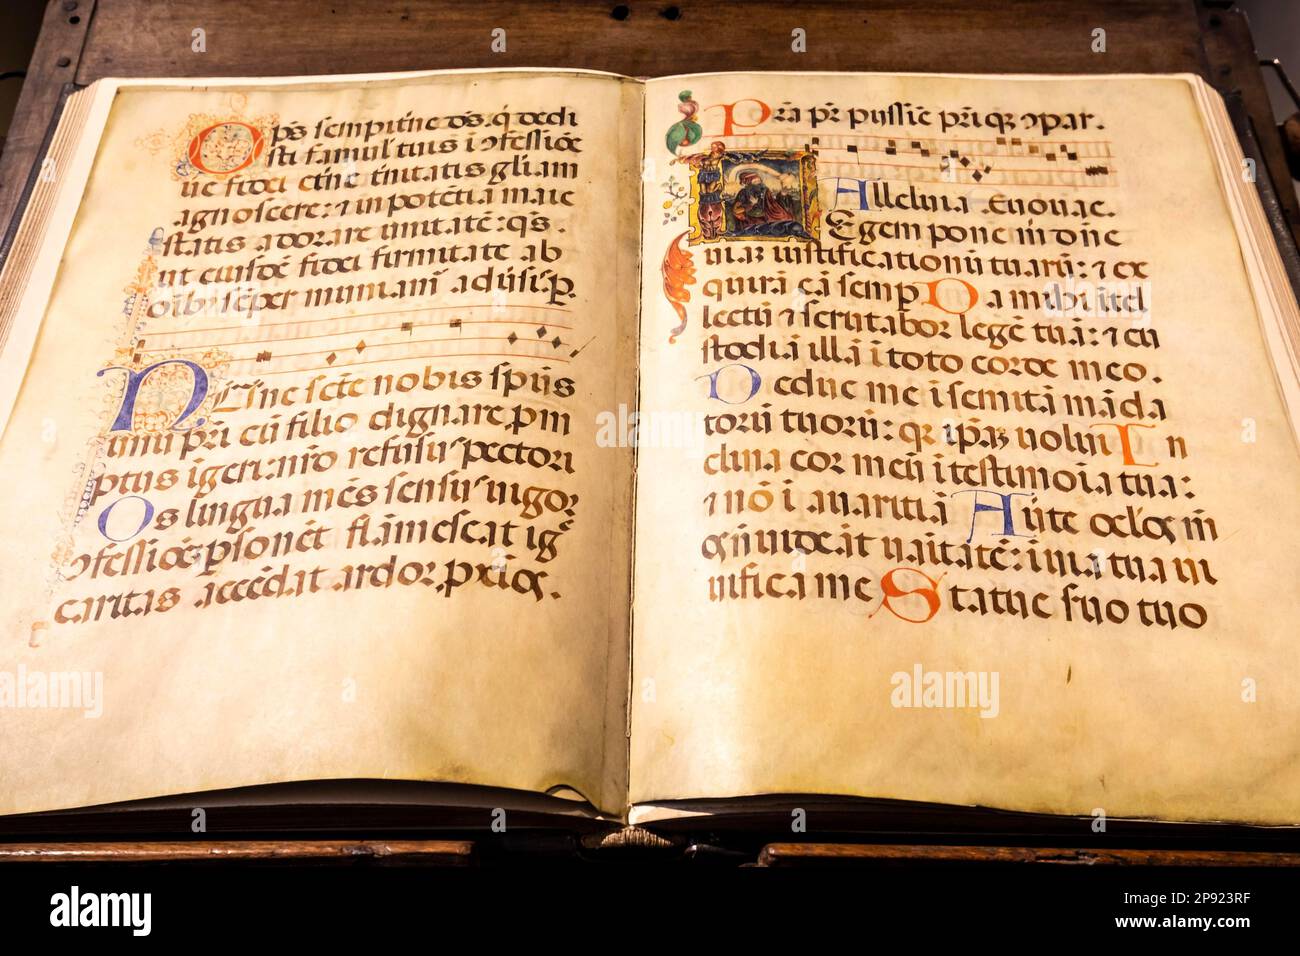 Op̄s sempitne ds. q̄ dedi
sti famulˀ tuis i ꝯfessiōe
ue fidei etne tinitatis gliam
agnoscere: ⁊ in potētia maie
statis adorare unitatē: q̄s.
ut eiusdē fidei firmitate ab
oīb' sēper muniam̄ adūsis. p.
Nunc scte nobis spūs
unū pr̄i cū filio dignare prom
ptus igeri: nr̄o refusus pectori
Os lingua mēs sensus uigor
ꝯfessiōē psonēt flāmescat ig
caritas accēdat ardor p̄xīos.
Pr̄a pr̄ pijssie pr̄i qȝ ꝯpar.
Alleluia Euouae.
Legem pone m̄ dn̄e
uiaȝ iustificationū tuarū: ⁊ ex
quirā eā semp Da mihi ītel
lectū ⁊ scrutabor legē tuā: ⁊ cu
stodiā illā ī toto corde meo.
Deduc me ī semitā māda
torū tuorū: qȝ ipāȝ uolui In
clina cor meū ī testimoia tua:
⁊ nō ī auaritiā Aūte oc'los m̄
os ne uideāt uaitatē: ī uia tua ui
uifica me Statue suo tuo
alamy
Image ID: 2P923RF
www.alamy.com